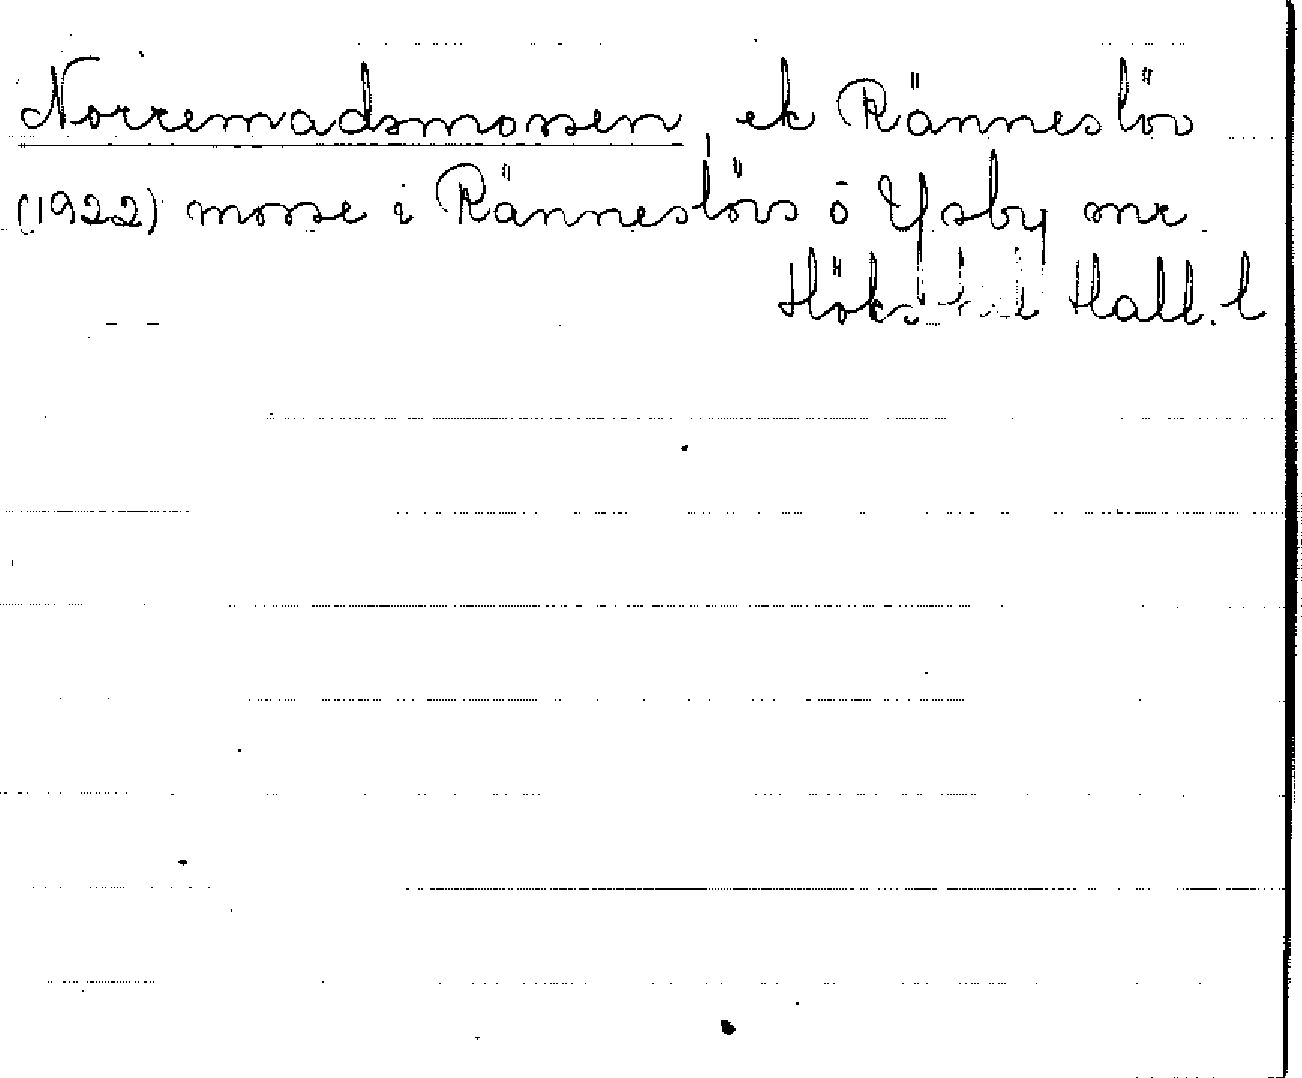 Norremadsmossen, ek Ränneslöv
(1922) mosse i Ränneslövs o Ysby snr
Höks hd Hall. l